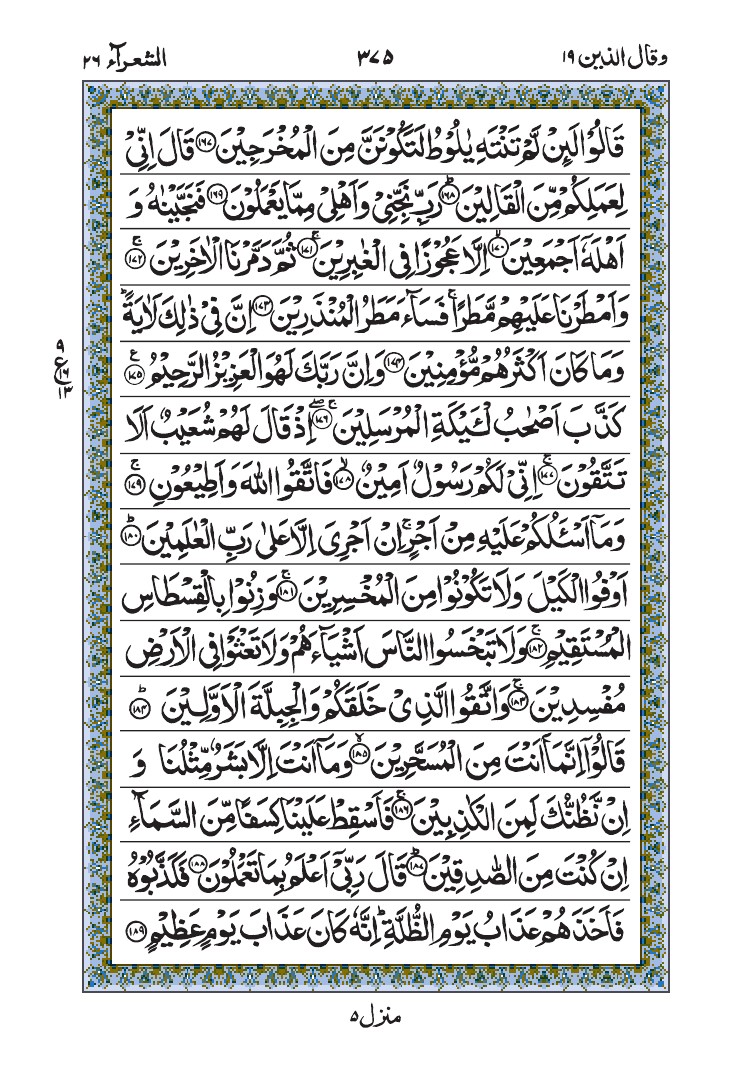 وقال الذين ١٩ ٣٧٥ الشعرآء ٢٦
قَالُوْا لَىِٕنْ لَّمْ تَنْتَهِ يٰلُوْطُ لَتَكُوْنَنَّ مِنَ الْمُخْرَجِيْنَ ﴿۱۶۷﴾ قَالَ اِنِّىْ
لِعَمَلِكُمْ مِّنَ الْقَالِيْنَ ؕ﴿۱۶۸﴾ رَبِّ نَجِّنِىْ وَاَهْلِىْ مِمَّا يَعْمَلُوْنَ ﴿۱۶۹﴾ فَنَجَّيْنٰهُ وَ
اَهْلَهٗۤ اَجْمَعِيْنَ ۙ﴿۱۷۰﴾ اِلَّا عَجُوْزًا فِى الْغٰبِرِيْنَ ۚ﴿۱۷۱﴾ ثُمَّ دَمَّرْنَا الْاٰخَرِيْنَ ۚ﴿۱۷۲﴾
وَاَمْطَرْنَا عَلَيْهِمْ مَّطَرًا ۚ فَسَآءَ مَطَرُ الْمُنْذَرِيْنَ ﴿۱۷۳﴾ اِنَّ فِىْ ذٰلِكَ لَاٰيَةً ؕ
وَمَا كَانَ اَكْثَرُهُمْ مُّؤْمِنِيْنَ ﴿۱۷۴﴾ وَاِنَّ رَبَّكَ لَهُوَ الْعَزِيْزُ الرَّحِيْمُ ﴿۱۷۵﴾ ع
٩
ع
١٦
١٣
كَذَّبَ اَصْحٰبُ لْئَيْكَةِ الْمُرْسَلِيْنَ ۚۖ﴿۱۷۶﴾ اِذْ قَالَ لَهُمْ شُعَيْبٌ اَلَا
تَتَّقُوْنَ ۚ﴿۱۷۷﴾ اِنِّىْ لَكُمْ رَسُوْلٌ اَمِيْنٌ ۙ﴿۱۷۸﴾ فَاتَّقُوا اللّٰهَ وَاَطِيْعُوْنِ ۚ﴿۱۷۹﴾
وَمَاۤ اَسْـَٔلُكُمْ عَلَيْهِ مِنْ اَجْرٍ ۚ اِنْ اَجْرِىَ اِلَّا عَلٰى رَبِّ الْعٰلَمِيْنَ ؕ﴿۱۸۰﴾
اَوْفُوا الْكَيْلَ وَلَا تَكُوْنُوْا مِنَ الْمُخْسِرِيْنَ ۚ﴿۱۸۱﴾ وَزِنُوْا بِالْقِسْطَاسِ
الْمُسْتَقِيْمِ ۚ﴿۱۸۲﴾ وَلَا تَبْخَسُوا النَّاسَ اَشْيَآءَهُمْ وَلَا تَعْثَوْا فِى الْاَرْضِ
مُفْسِدِيْنَ ۚ﴿۱۸۳﴾ وَاتَّقُوا الَّذِىْ خَلَقَكُمْ وَالْجِبِلَّةَ الْاَوَّلِيْنَ ؕ﴿۱۸۴﴾
قَالُوْۤا اِنَّمَاۤ اَنْتَ مِنَ الْمُسَحَّرِيْنَ ۙ﴿۱۸۵﴾ وَمَاۤ اَنْتَ اِلَّا بَشَرٌ مِّثْلُنَا وَ
اِنْ نَّظُنُّكَ لَمِنَ الْكٰذِبِيْنَ ۚ﴿۱۸۶﴾ فَاَسْقِطْ عَلَيْنَا كِسَفًا مِّنَ السَّمَآءِ
اِنْ كُنْتَ مِنَ الصّٰدِقِيْنَ ؕ﴿۱۸۷﴾ قَالَ رَبِّىْۤ اَعْلَمُ بِمَا تَعْمَلُوْنَ ﴿۱۸۸﴾ فَكَذَّبُوْهُ
فَاَخَذَهُمْ عَذَابُ يَوْمِ الظُّلَّةِ ؕ اِنَّهٗ كَانَ عَذَابَ يَوْمٍ عَظِيْمٍ ﴿۱۸۹﴾
منزل ٥